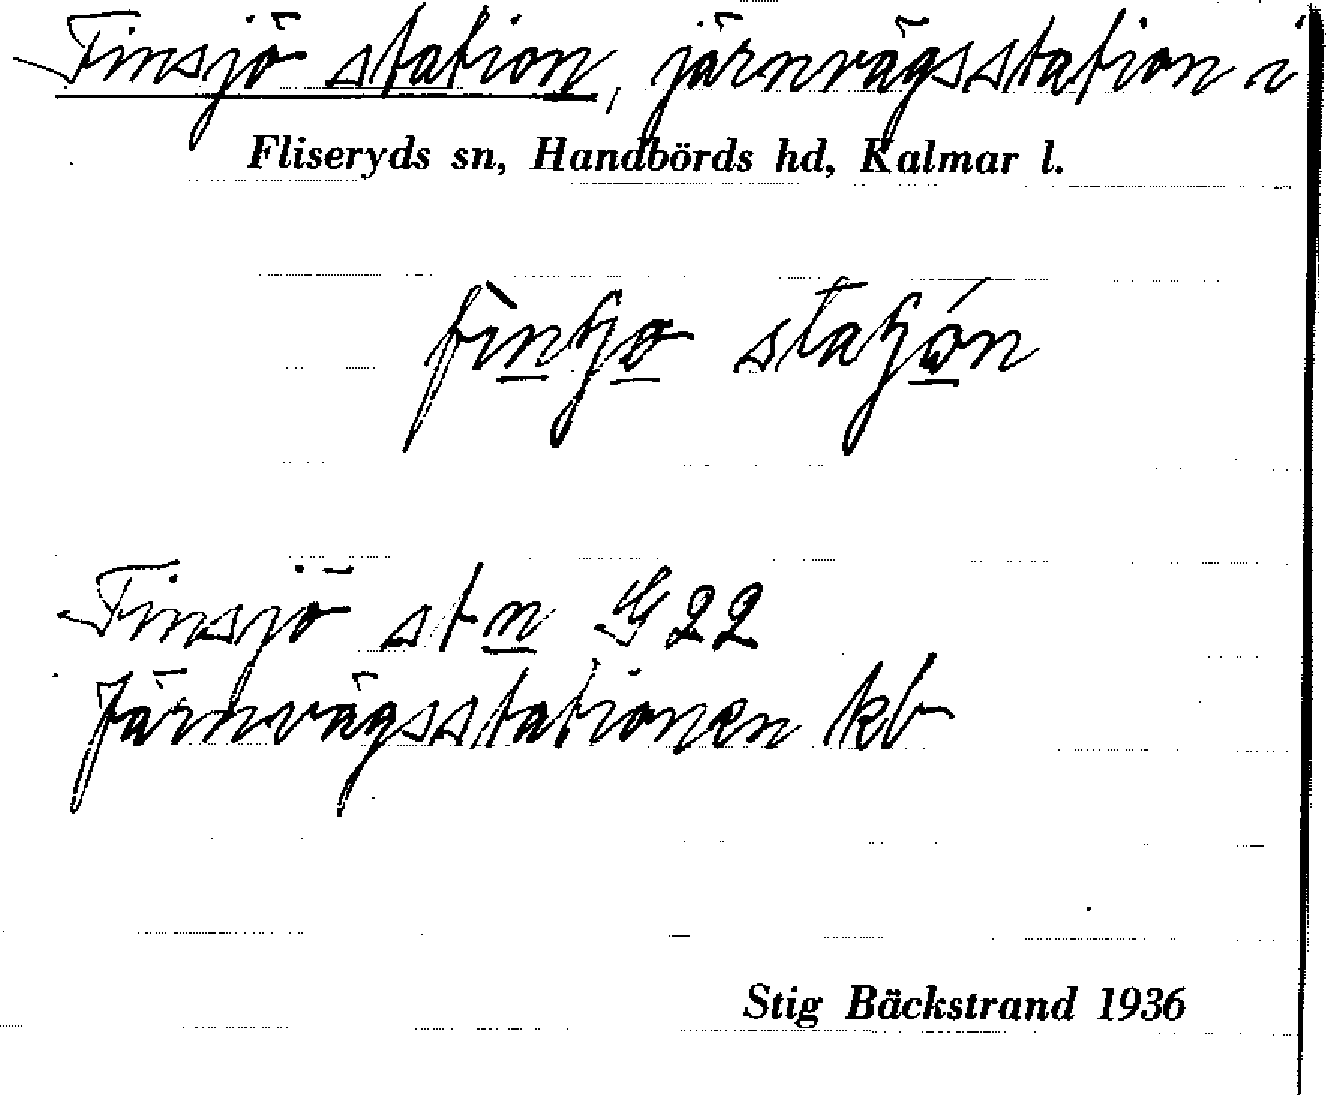 Finsjö station, järnvägsstation i
Fliseryds sn, Handbörds hd, Kalmar l.
Finsjö stn G 22
Järnvägsstationen kb
Stig Bäckstrand 1936